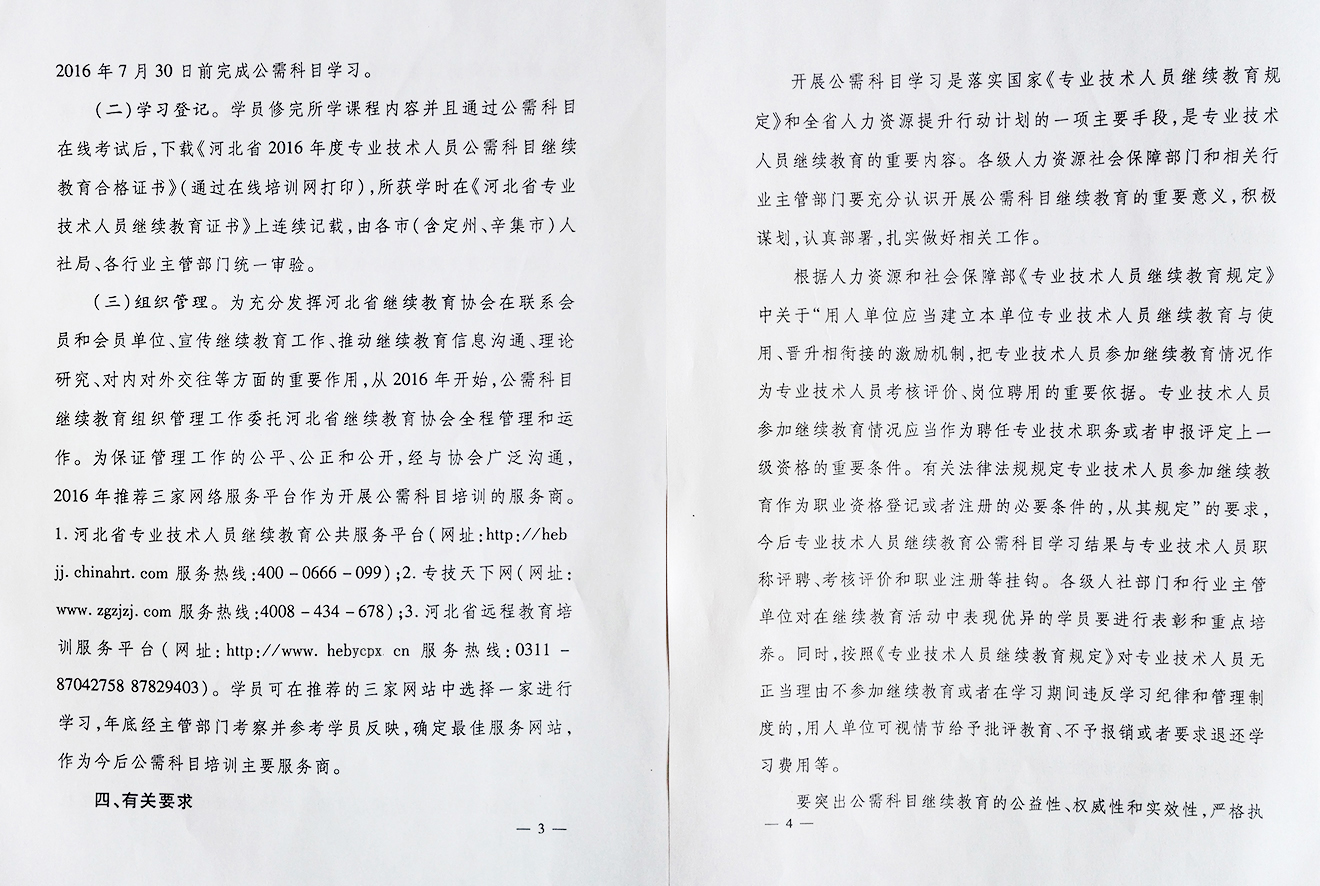 2016 年 7 月 30 日前完成公需科目学习。
(二)学习登记。学员修完所学课程内容并且通过公需科目
在线考试后,下载《河北省 2016 年度专业技术人员公需科目继续
教育合格证书》(通过在线培训网打印),所获学时在《河北省专业
技术人员继续教育证书》上连续记载,由各市(含定州、辛集市)人
社局、各行业主管部门统一审验。
(三)组织管理。为充分发挥河北省继续教育协会在联系会
员和会员单位、宣传继续教育工作、推动继续教育信息沟通、理论
研究、对内对外交往等方面的重要作用,从 2016 年开始,公需科目
继续教育组织管理工作委托河北省继续教育协会全程管理和运
作。为保证管理工作的公平、公正和公开,经与协会广泛沟通,
2016 年推荐三家网络服务平台作为开展公需科目培训的服务商。
1. 河北省专业技术人员继续教育公共服务平台(网址:http://heb
jj. chinahrt. com 服务热线:400 - 0666 - 099);2. 专技天下网(网址:
www. zgzjzj. com 服务热线:4008 - 434 - 678);3. 河北省远程教育培
训服务平台(网址:http://www. hebycpx. cn 服务热线:0311 -
87042758 87829403)。学员可在推荐的三家网站中选择一家进行
学习,年底经主管部门考察并参考学员反映,确定最佳服务网站,
作为今后公需科目培训主要服务商。
四、有关要求
— 3 —
开展公需科目学习是落实国家《专业技术人员继续教育规
定》和全省人力资源提升行动计划的一项主要手段,是专业技术
人员继续教育的重要内容。各级人力资源社会保障部门和相关行
业主管部门要充分认识开展公需科目继续教育的重要意义,积极
谋划,认真部署,扎实做好相关工作。
根据人力资源和社会保障部《专业技术人员继续教育规定》
中关于“用人单位应当建立本单位专业技术人员继续教育与使
用、晋升相衔接的激励机制,把专业技术人员参加继续教育情况作
为专业技术人员考核评价、岗位聘用的重要依据。专业技术人员
参加继续教育情况应当作为聘任专业技术职务或者申报评定上一
级资格的重要条件。有关法律法规规定专业技术人员参加继续教
育作为职业资格登记或者注册的必要条件的,从其规定”的要求,
今后专业技术人员继续教育公需科目学习结果与专业技术人员职
称评聘、考核评价和职业注册等挂钩。各级人社部门和行业主管
单位对在继续教育活动中表现优异的学员要进行表彰和重点培
养。同时,按照《专业技术人员继续教育规定》对专业技术人员无
正当理由不参加继续教育或者在学习期间违反学习纪律和管理制
度的,用人单位可视情节给予批评教育、不予报销或者要求退还学
习费用等。
要突出公需科目继续教育的公益性、权威性和实效性,严格执
— 4 —